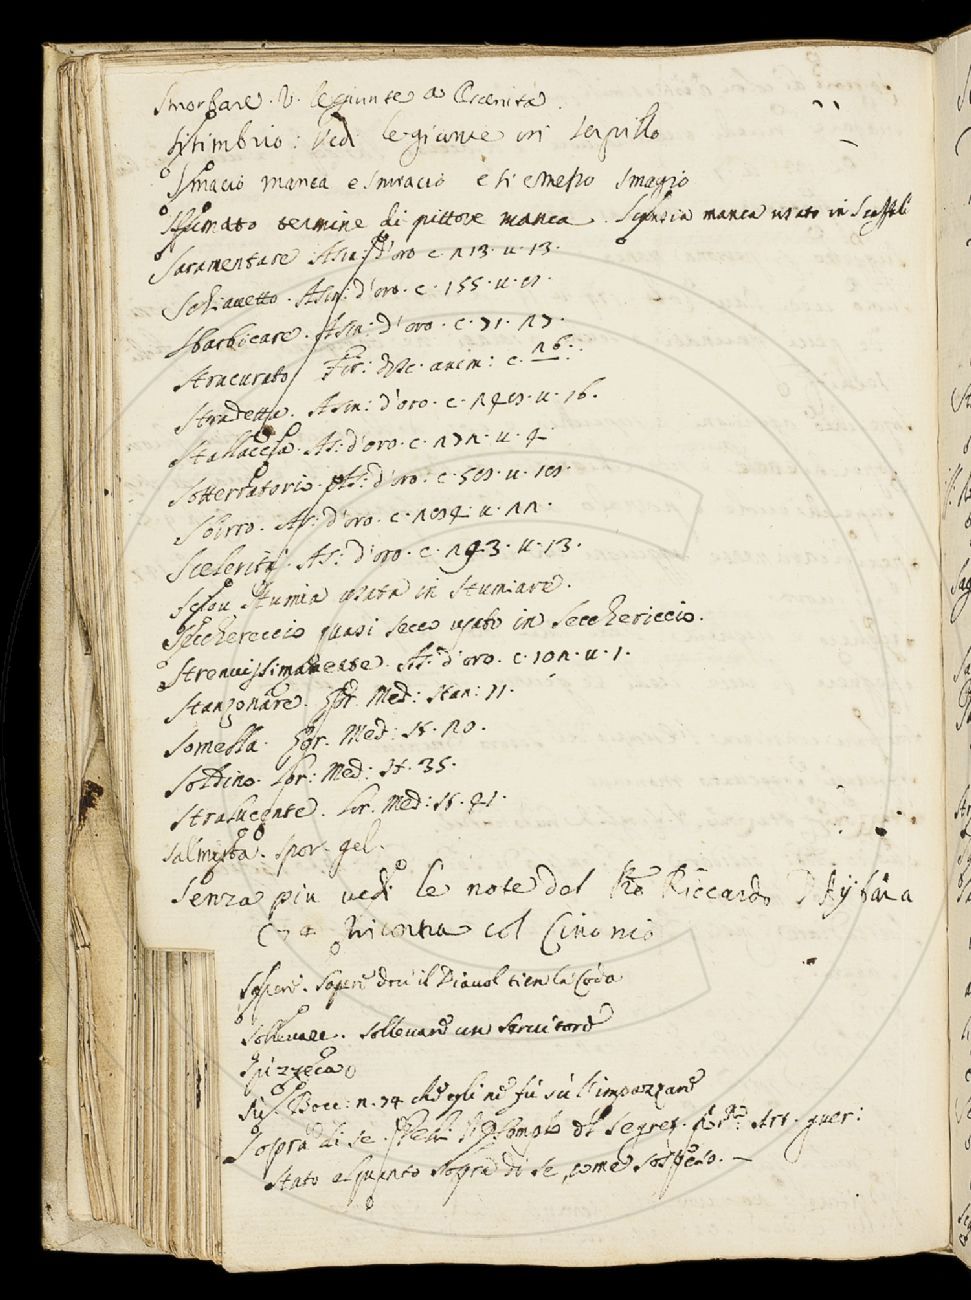 Smorbare. V. le giunte a Oscenità.
Sisimbrio: Vedi le giunte in Serpillo
Smacio manca e smiracio e si è messo smagio
Sfumato termine di pittore manca. manca usato in
Saramentare Asin: d'oro c. 213. u. 13.
Schiavetto. Asin: d'oro. c. 155. u.
Sbarbicare. Asin: d'oro. c. 71. 27.
Stracurato Fir: disc. anim: c. 26.
Stradetta. Asin: d'oro. c. u. 16.
Stallaccia. As: d'oro. c. 272. u. 4
Sotterratorio. As: d'oro: c. u.
Sbirro. As: d'oro. c. u. 22.
Scelerità. As: d'oro. c. 243. u. 13.
Stumia usata in Stumiare.
Secchereccio quasi secco usato in Secchericcio.
Strenuissimamente. As: d'oro. c. 102. u. 1.
Stanzonare. Lor. Med: stan: 11.
Somessa. Lor. Med: st. 20.
Soldino. Lor: Med: st. 35.
Stralucente. Lor. Med: st. 41.
Salmista. Spor. gel.
Senza più vedi le note del Riccardo
riscontra col Cinonio
Sapere. Sapere dove il Diavol tien la Coda
Sollevare. sollevare un Servitore
Spizzeca
Su. Bocc: n. 74 che egli ne fu su l'impazzare
Sopra di se. Segrez. Art. guer:
Stato alquanto sopra di se, come sospeso.